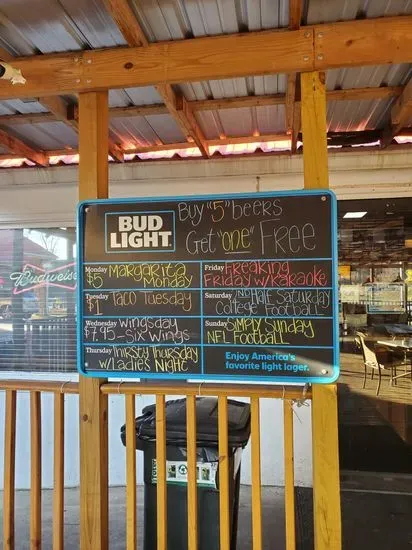 BUD
LIGHT
Buy "5" beers
Get "one" Free
Monday Margarita
$5 Monday
Tuesday Taco Tuesday
$1
Wednesday Wingsday
$7.95 - Six Wings
Thursday Thirsty Thursday
w/Ladies Night
Friday Freaking
Friday w/Karaoke
Saturday 2ND Half Saturday
College Football
Sunday Simply Sunday
NFL Football
Enjoy America's
favorite light lager.
Budweiser